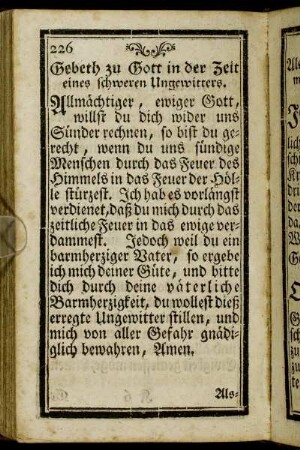 226
Gebeth zu Gott in der Zeit
eines schweren Ungewitters.
Allmächtiger, ewiger Gott,
willst du dich wider uns
Sünder rechnen, so bist du ge-
recht, wenn du uns sündige
Menschen durch das Feuer des
Himmels in das Feuer der Höl-
le stürzest. Ich hab es vorlängst
verdienet, daß du mich durch das
zeitliche Feuer in das ewige ver-
dammest. Jedoch weil du ein
barmherziger Vater, so ergebe
ich mich deiner Güte, und bitte
dich durch deine väterliche
Barmherzigkeit, du wollest dieß
erregte Ungewitter stillen, und
mich von aller Gefahr gnädi-
glich bewahren, Amen.
Als-